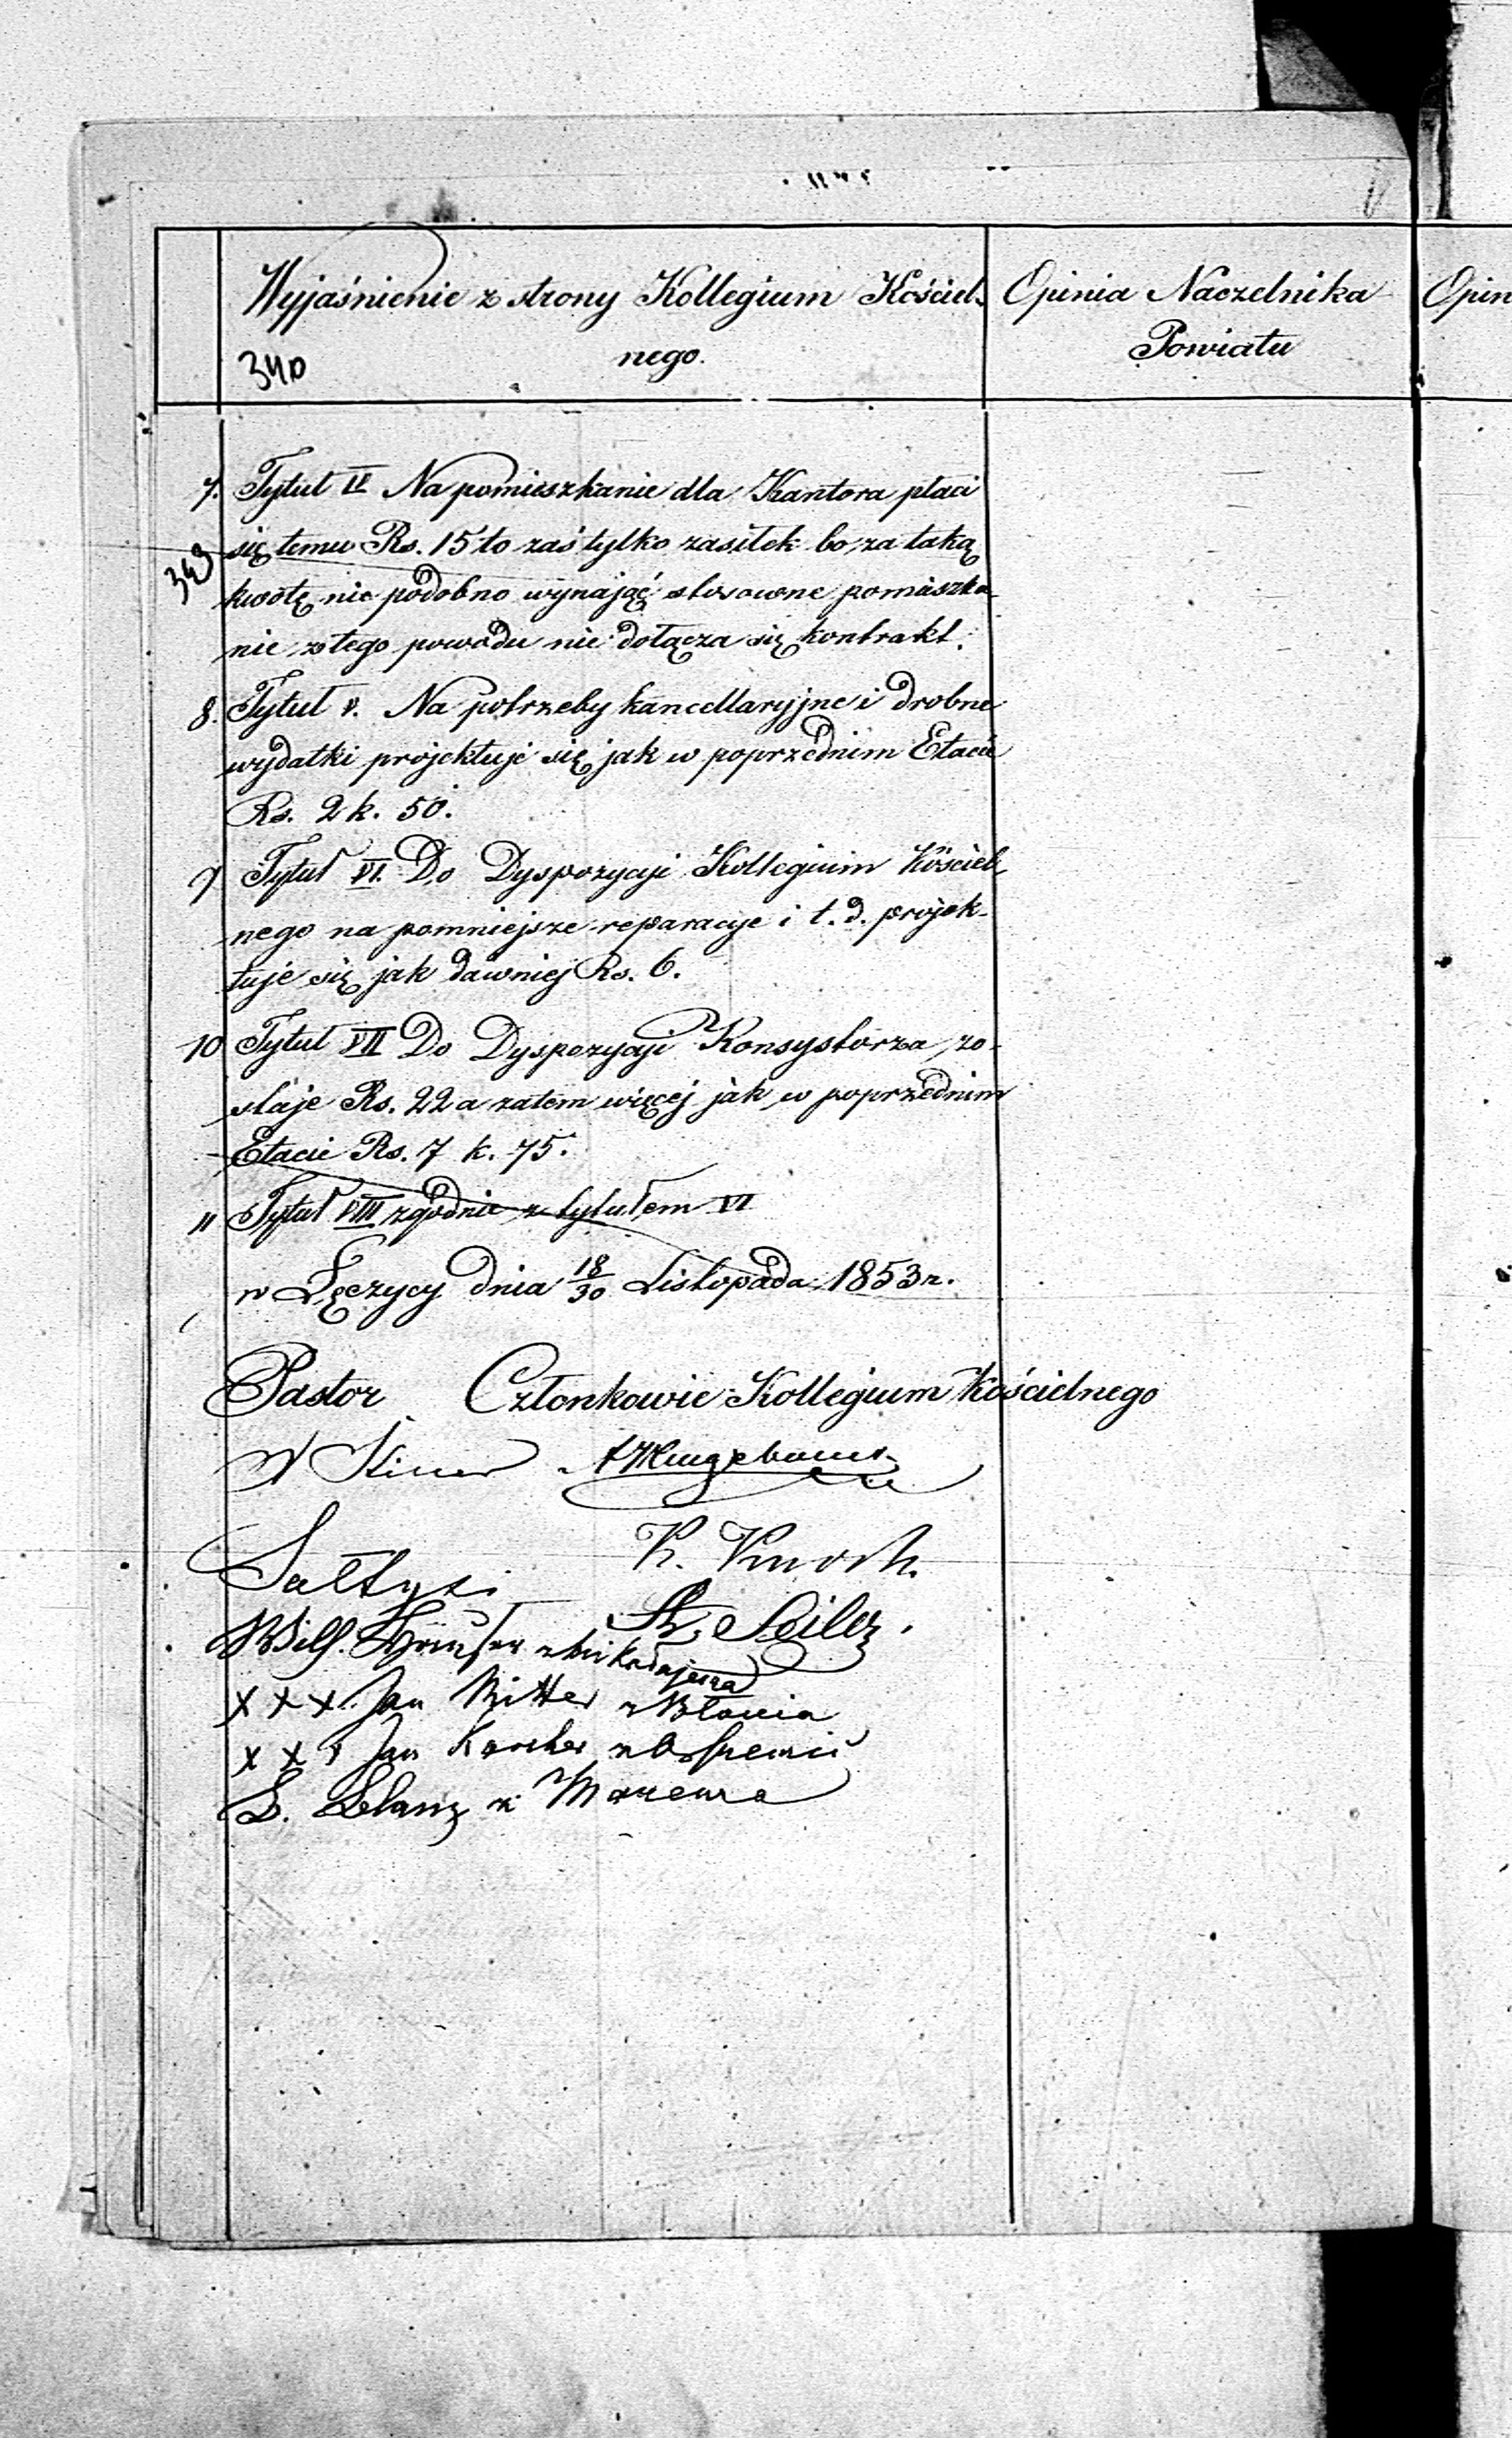 Wyjaśnienie z strony Kollegium Kościel-
nego.
340
Opinia Naczelnika
Powiatu
Opin
7. Tytuł IV Na pomieszkanie dla Kantora płaci
się temu Rs. 15 to zaś tylko zasiłek bo za taką
349
kwotę nie podobno wynająć stosowne pomieszka-
nie z tego powodu nie dołącza się kontrakt.
8. Tytuł V. Na potrzeby kancellaryjne i drobne
wydatki projektuje się jak w poprzednim Etacie
Rs. 2 k. 50.
9 Tytuł VI. Do Dyspozycji Kollegium Kościel-
nego na pomniejsze reparacye i t. d. projek-
tuje się jak dawniej Rs. 6.
10 Tytuł VII Do Dyspozycji Konsystorza zo-
staje Rs. 22 a zatem więcej jak w poprzednim
Etacie Rs. 7 k. 75.
11 Tytuł VIII zgodnie z tytułem VI
w Łęczycy dnia 18/30 Listopada 1853 r.
Pastor Członkowie Kollegium Kościelnego
K. Knoch.
Sołtysi
Wilh.
xxx Jan Ritter z Błonia
xxx Jan Karcher
L.